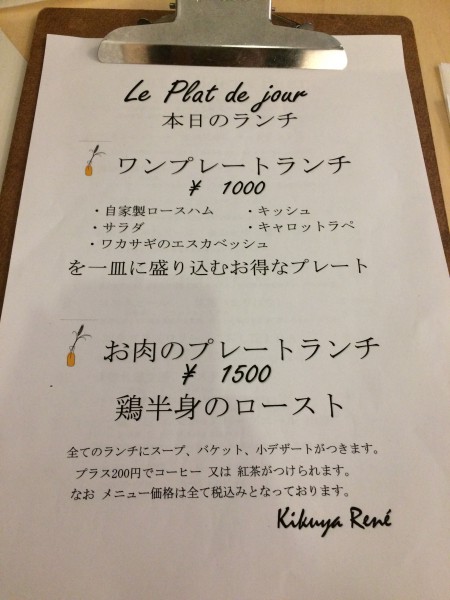 Le Plat de jour
本日のランチ
ワンプレートランチ
¥ 1000
・自家製ロースハム ・キッシュ
・サラダ ・キャロットラペ
・ワカサギのエスカベッシュ
を一皿に盛り込むお得なプレート
お肉のプレートランチ
¥ 1500
鶏半身のロースト
全てのランチにスープ、バケット、小デザートがつきます。
プラス200円でコーヒー 又は 紅茶がつけられます。
なお メニュー価格は全て税込みとなっております。
Kikuya René